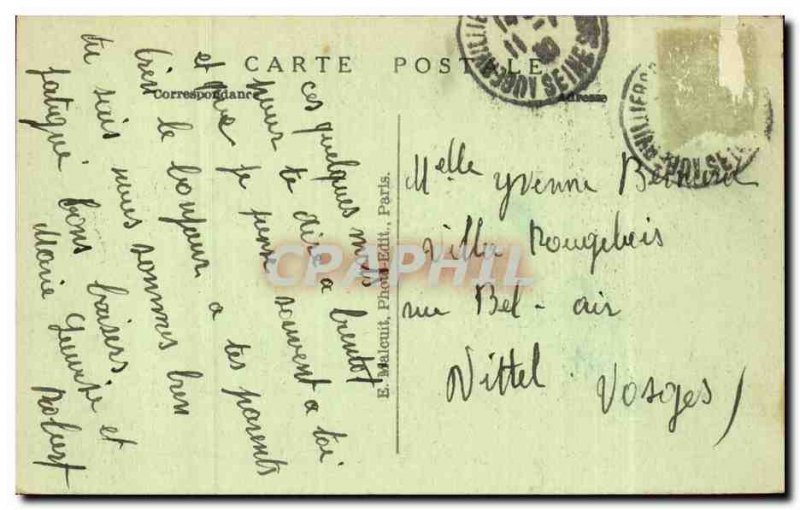 CARTE POSTALE
Correspondance
Adresse
ces quelques mots
pour te dire a bientot
et que je pense souvent a toi
bien le bonjour a tes parents
tu sais nous sommes bien
fatigué bons baisers
Marie Louise et
Robert
E. Malcuit, Photo-Edit., Paris.
Melle Yvonne
Villa Rougebois
rue Bel-air
Vittel Vosges
AUBERVILLIERS SEINE
11
30
AUBERVILLIERS SEINE
CPAPHIL